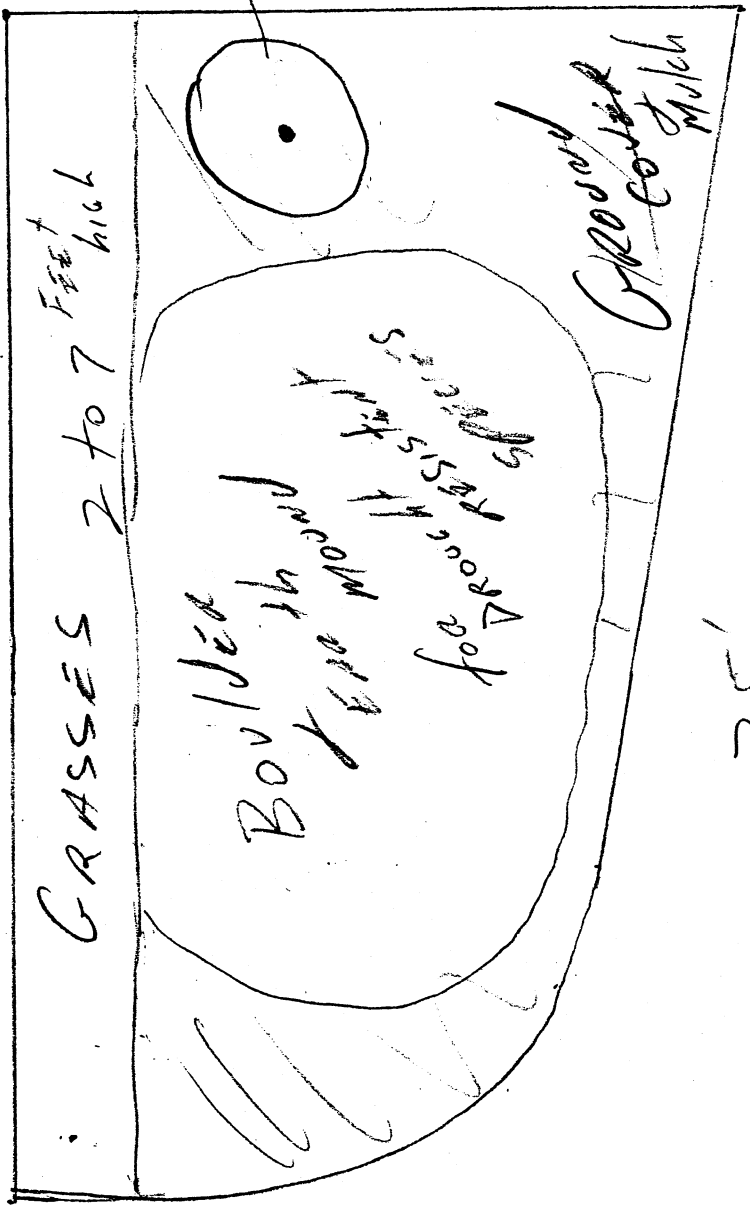 GRASSES 2 to 7 FEET
high
BoulDER
EARth MOUND
foR DROUGHT RESISTINT
SPECIES
GROUND
COVER
& Mulch
25'